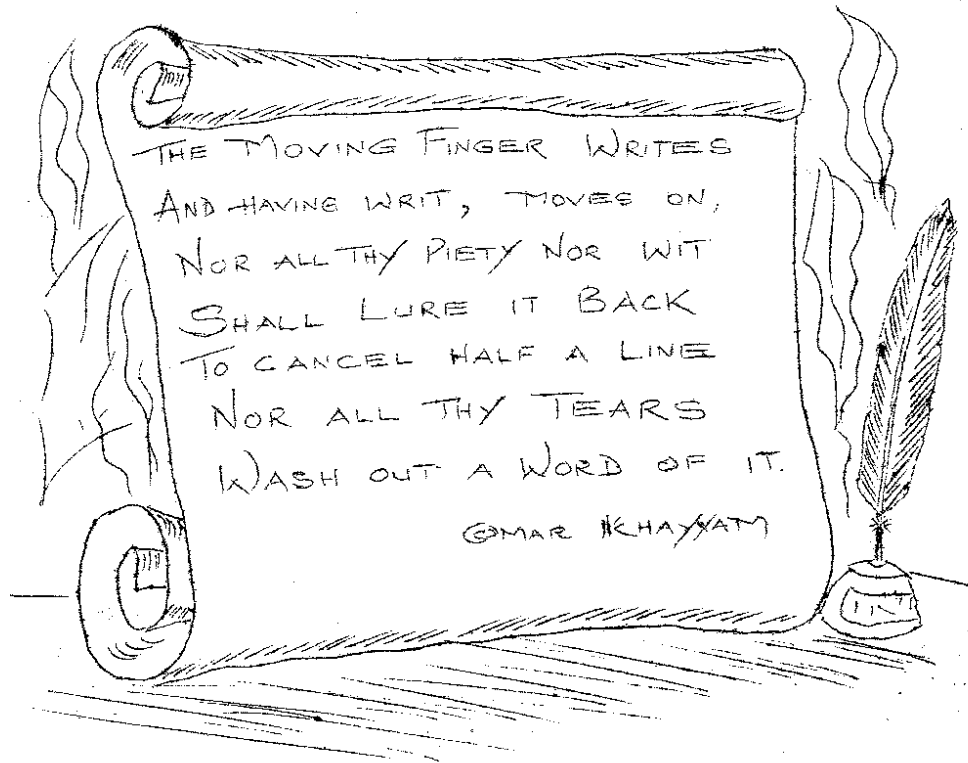 THE MOVING FINGER WRITES
AND HAVING WRIT, MOVES ON,
NOR ALL THY PIETY NOR WIT
SHALL LURE IT BACK
TO CANCEL HALF A LINE
NOR ALL THY TEARS
WASH OUT A WORD OF IT.
OMAR KHAYYAM
INK